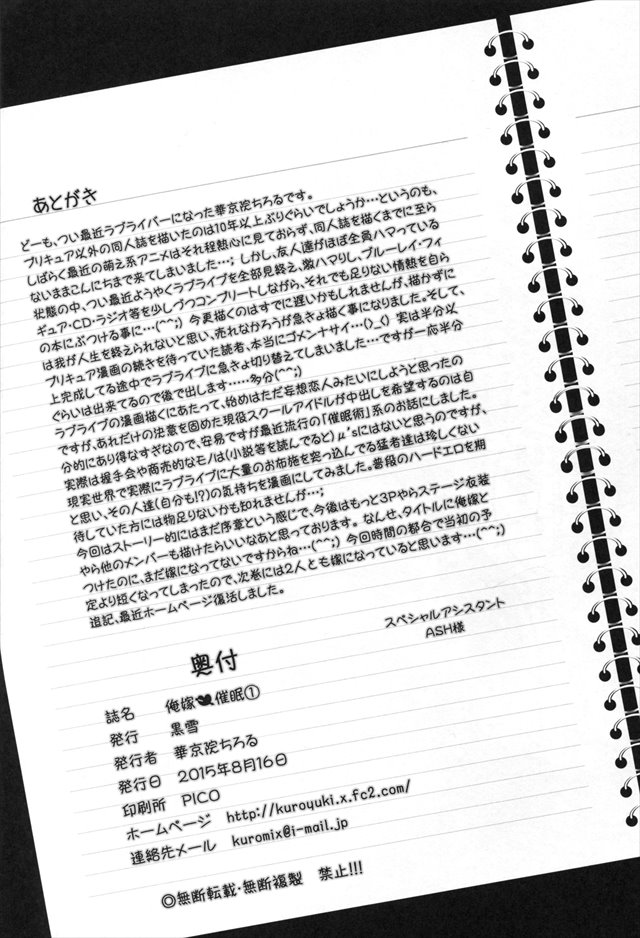 あとがき
どーも、つい最近ラブライバーになった華京院ちろるです。
プリキュア以外の同人誌を描いたのは10年以上ぶりぐらいでしょうか…というのも、
しばらく最近の萌え系アニメはそれ程熱心に見ておらず、同人誌を描くまでに至ら
ないままこんにちまで来てしまいました…; しかし、友人達がほぼ全員ハマっている
状態の中、つい最近ようやくラブライブを全部見終え、激ハマりし、ブルーレイ・フィ
ギュア・CD・ラジオ等を少しづつコンプリートしながら、それでも足りない情熱を自ら
の本にぶつける事に…(^^;) 今更描くのはすでに遅いかもしれませんが、描かずに
は我が人生を終えられないと思い、売れなかろうが急きょ描く事になりました。そして、
プリキュア漫画の続きを待っていた読者、本当にゴメンナサイ…()_() 実は半分以
上完成してる途中でラブライブに急きょ切り替えてしまいました…ですが一応半分
ぐらいは出来てるので後で出します……多分(^^;)
ラブライブの漫画描くにあたって、始めはただ妄想恋人みたいにしようと思ったの
ですが、あれだけの決意を固めた現役スクールアイドルが中出しを希望するのは自
分的にあり得なすぎなので、安易ですが最近流行の「催眠術」系のお話にしました。
実際は握手会や商売的なモノは(小説等を読んでると)μ'sにはないと思うのですが、
現実世界で実際にラブライブに大量のお布施を突っ込んでる猛者達は珍しくない
と思い、その人達(自分も!?)の気持ちを漫画にしてみました。普段のハードエロを期
待していた方には物足りないかも知れませんが…;
今回はストーリー的にはまだ序章という感じで、今後はもっと3Pやらステージ衣装
やら他のメンバーも描けたらいいなあと思っております。なんせ、タイトルに俺嫁と
つけたのに、まだ嫁になってないですからね…(^^;) 今回時間の都合で当初の予
定より短くなってしまったので、次巻には2人とも嫁になっていると思います…(^^;)
追記、最近ホームページ復活しました。
スペシャルアシスタント
ASH様
奥付
誌名 俺嫁催眠①
発行 黒雪
発行者 華京院ちろる
発行日 2015年8月16日
印刷所 PICO
ホームページ http://kuroyuki.x.fc2.com/
連絡先メール kuromix@i-mail.jp
◎無断転載・無断複製 禁止!!!